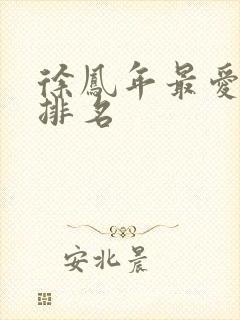 徐鳳年最愛
排名
安北晨